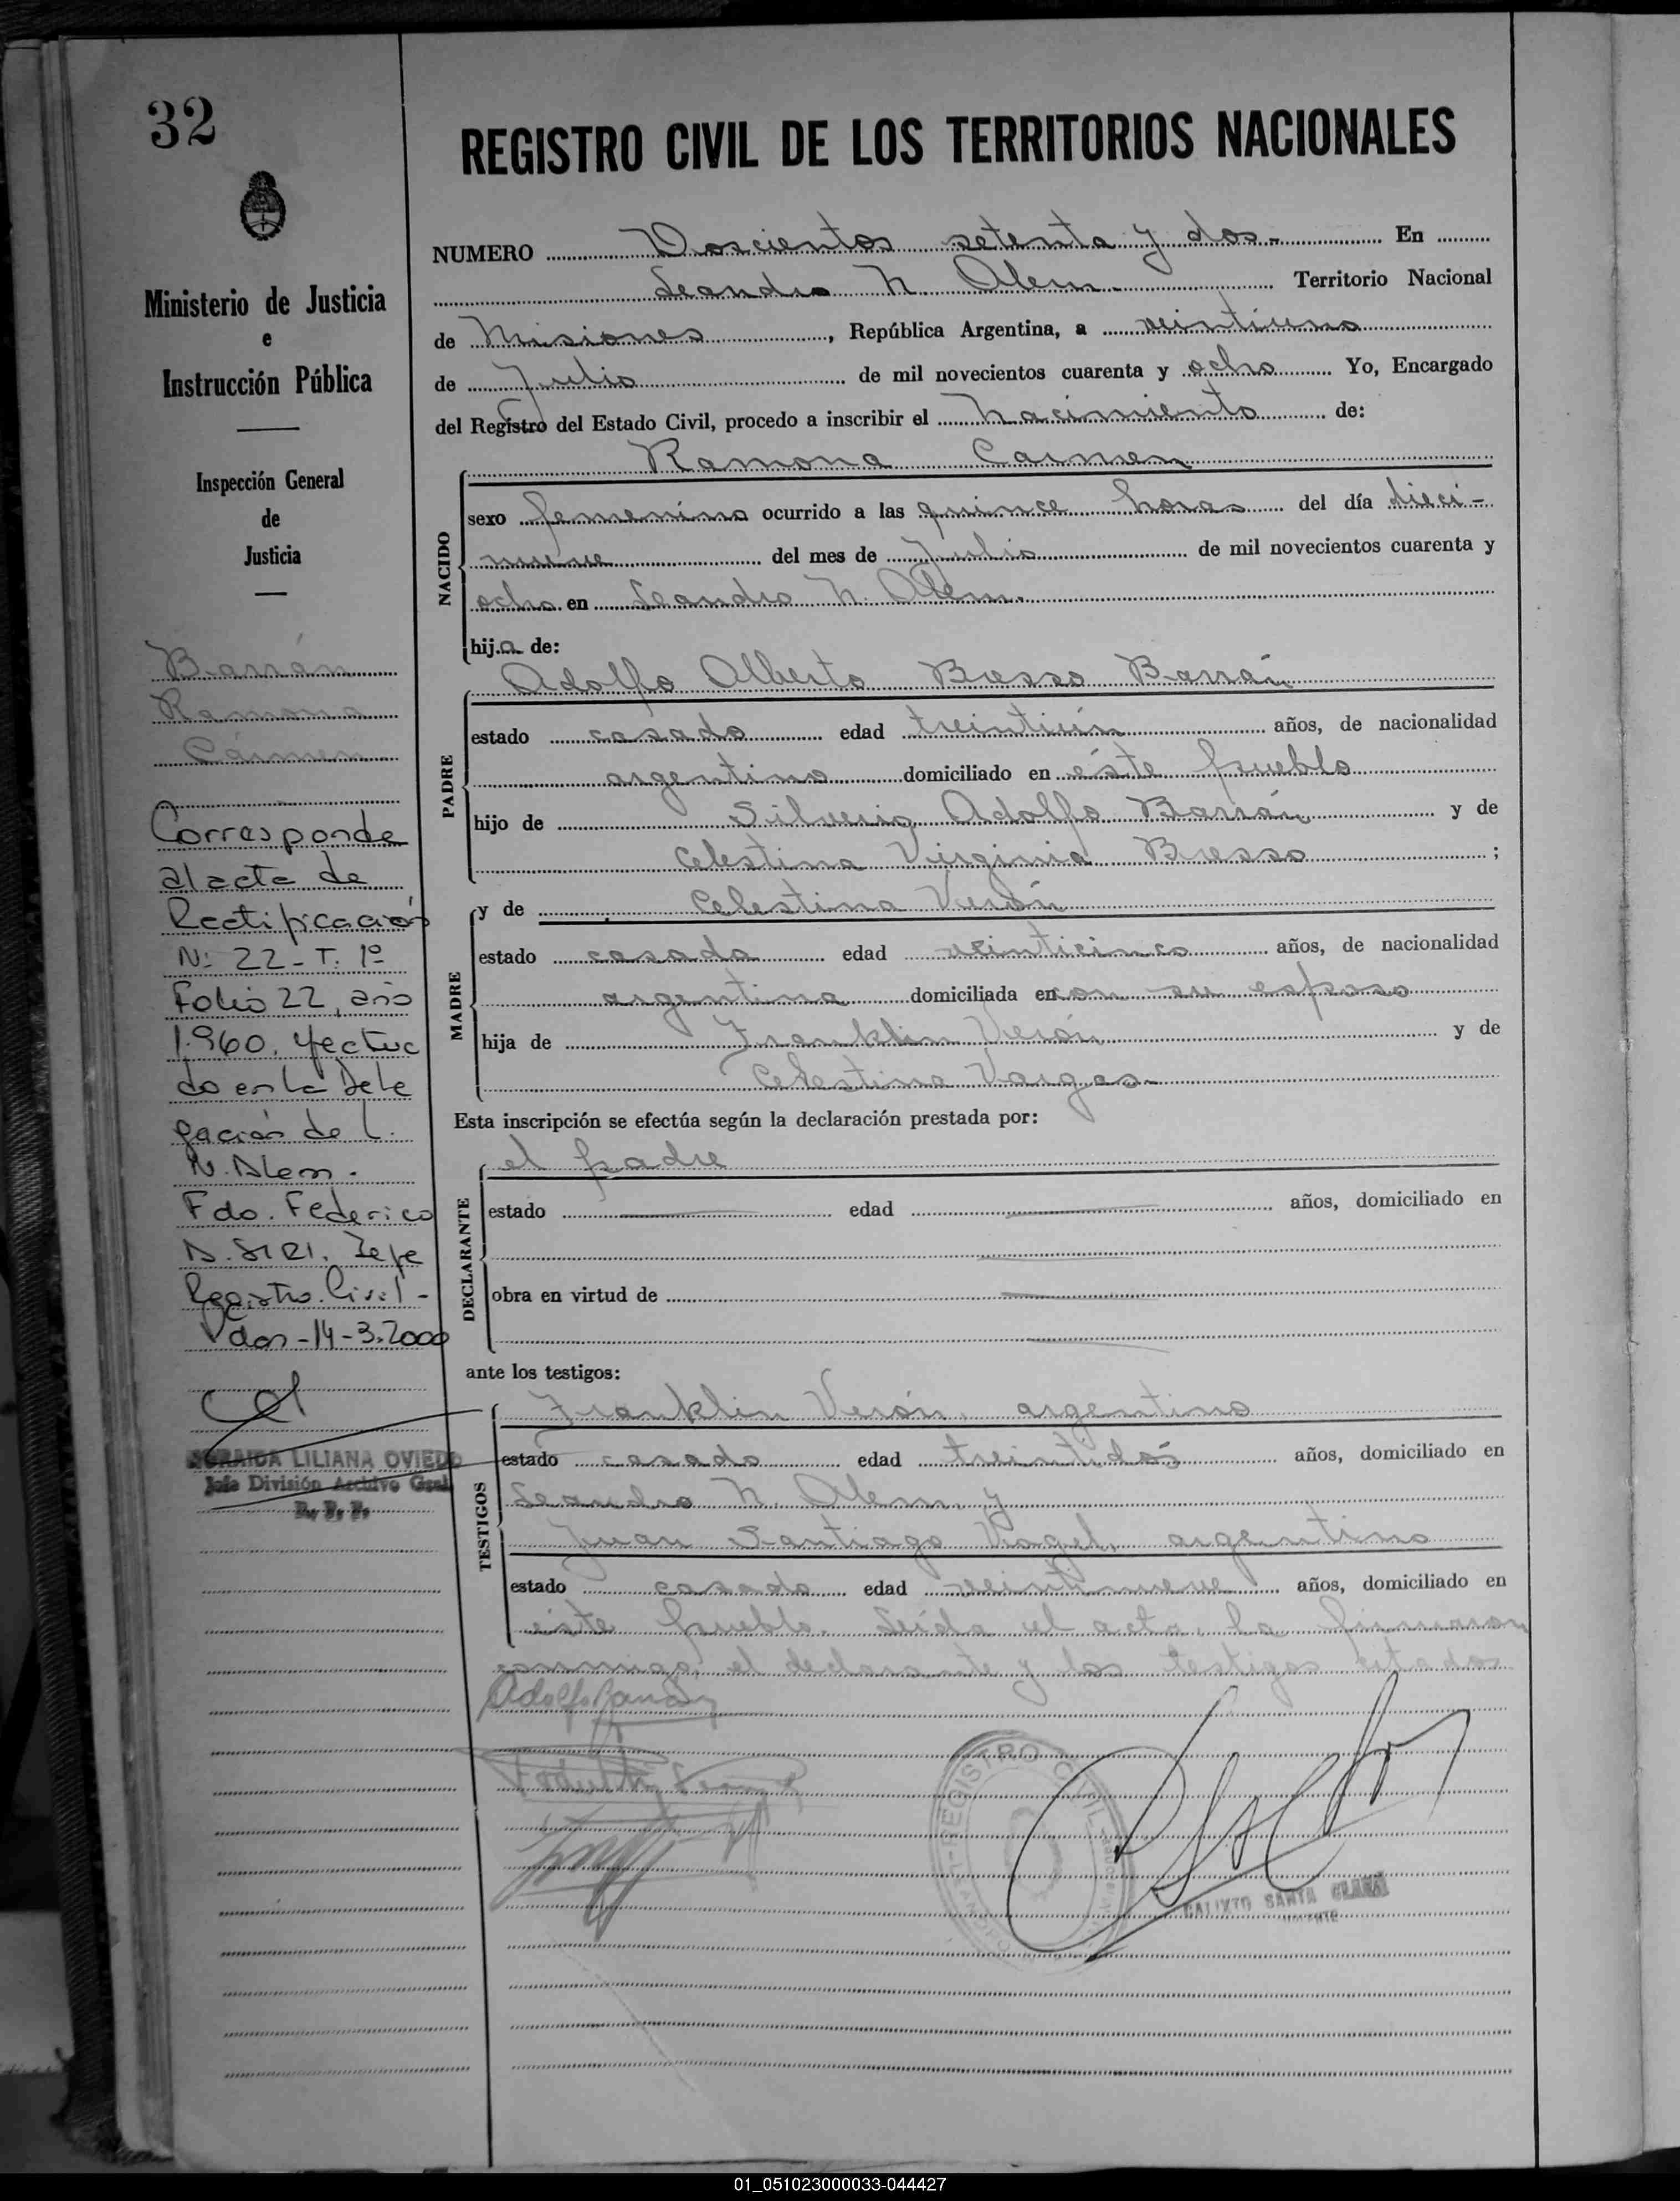 32
Ministerio de Justicia
e
Instrucción Pública
Inspección General
de
Justicia
Barrán
Ramona
Cármen
Corresponde
al acta de
Rectificación
N: 22 - T: 1º
Folio 22, año
1.960, efectua
do en la Dele
gación de L.
N. Alem.
Fdo. Federico
A. SIRI. Jefe
Registro Civil -
Pdas - 14 - 3.2000
ZORAIDA LILIANA OVIEDO
Jefa División Archivo Gral
R. P. P.
REGISTRO CIVIL DE LOS TERRITORIOS NACIONALES
NUMERO Doscientos setenta y dos.- En
Leandro N. Alem. Territorio Nacional
de Misiones, República Argentina, a veintiuno
de Julio de mil novecientos cuarenta y ocho Yo, Encargado
del Registro del Estado Civil, procedo a inscribir el nacimiento de:
Ramona Carmen
NACIDO
sexo femenino ocurrido a las quince horas del día dieci-
nueve del mes de Julio de mil novecientos cuarenta y
ocho en Leandro N. Alem.
hija de:
Adolfo Alberto Bresso Barrán
PADRE
estado casado edad treintiún años, de nacionalidad
argentino domiciliado en éste pueblo
hijo de Silverio Adolfo Barrán y de
Celestina Virginia Bresso ;
y de Celestina Verón
MADRE
estado casada edad veinticinco años, de nacionalidad
argentina domiciliada en con su esposo
hija de Franklin Verón y de
Celestina Vargas.
Esta inscripción se efectúa según la declaración prestada por:
el padre
DECLARANTE
estado edad años, domiciliado en
obra en virtud de
ante los testigos:
Franklin Verón, argentino
TESTIGOS
estado casado edad treintidós años, domiciliado en
Leandro N. Alem. y
Juan Santiago Vogel, argentino
estado casado edad veintinueve años, domiciliado en
éste pueblo. Leída el acta, la firmaron
conmigo, el declarante y los testigos citados.
Adolfo Barrán
REGISTRO CIVIL
CALIXTO SANTA CLARA
01_051023000033-044427